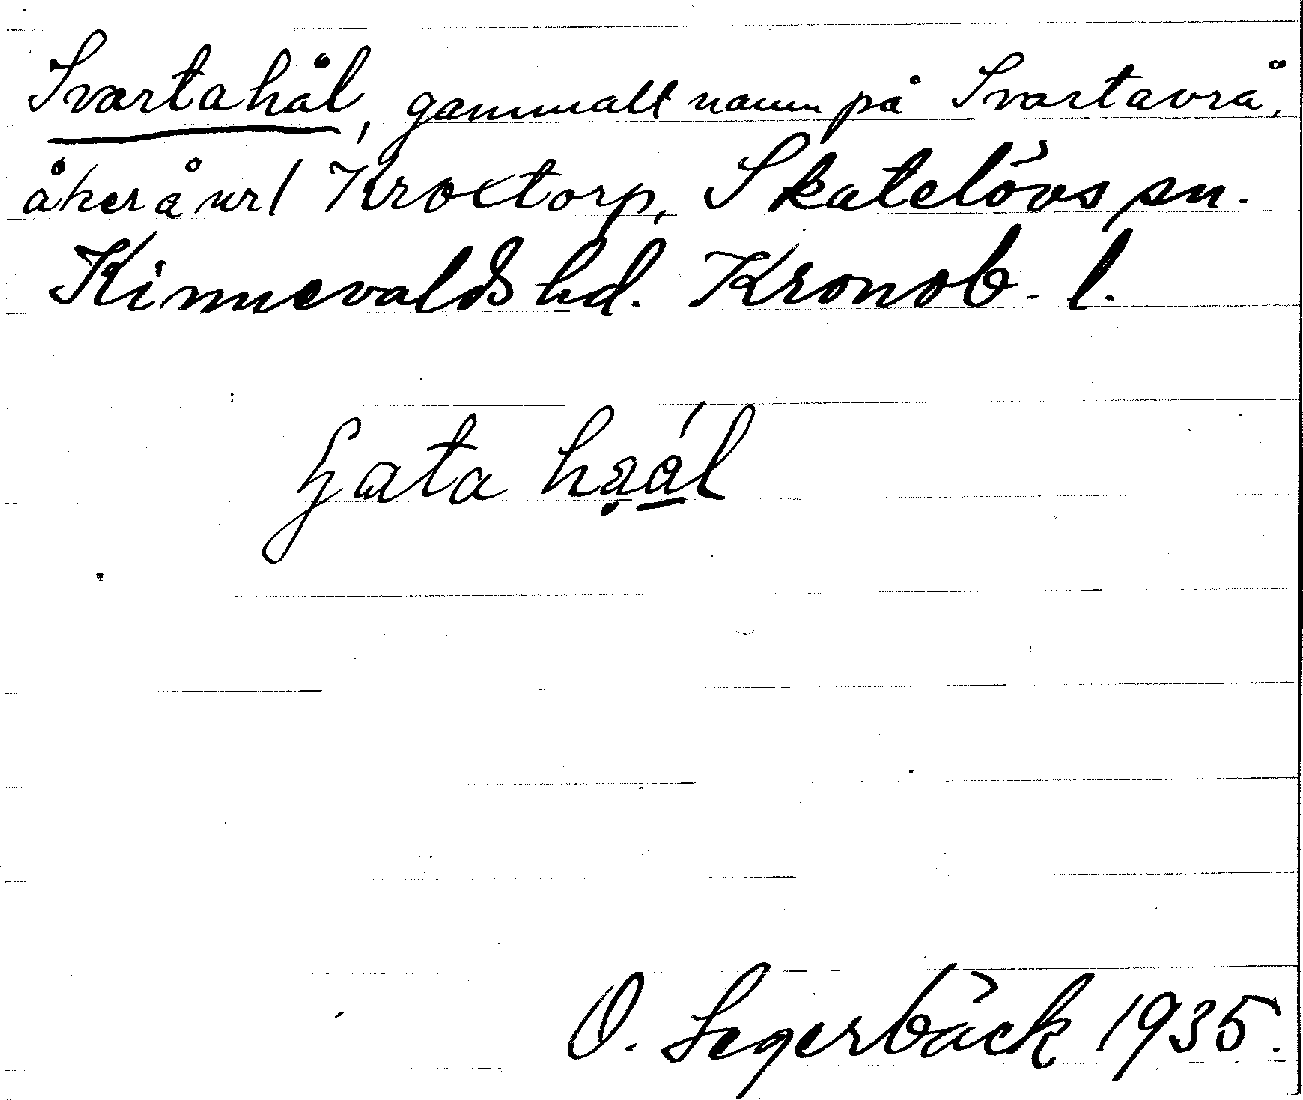 Svartahål, gammalt namn på Svartavrå,
åker å nr 1 Kroxtorp, Skatelövs sn.
Kinnevalds hd. Kronob. l.
hał
O. Segerbäck 1935.